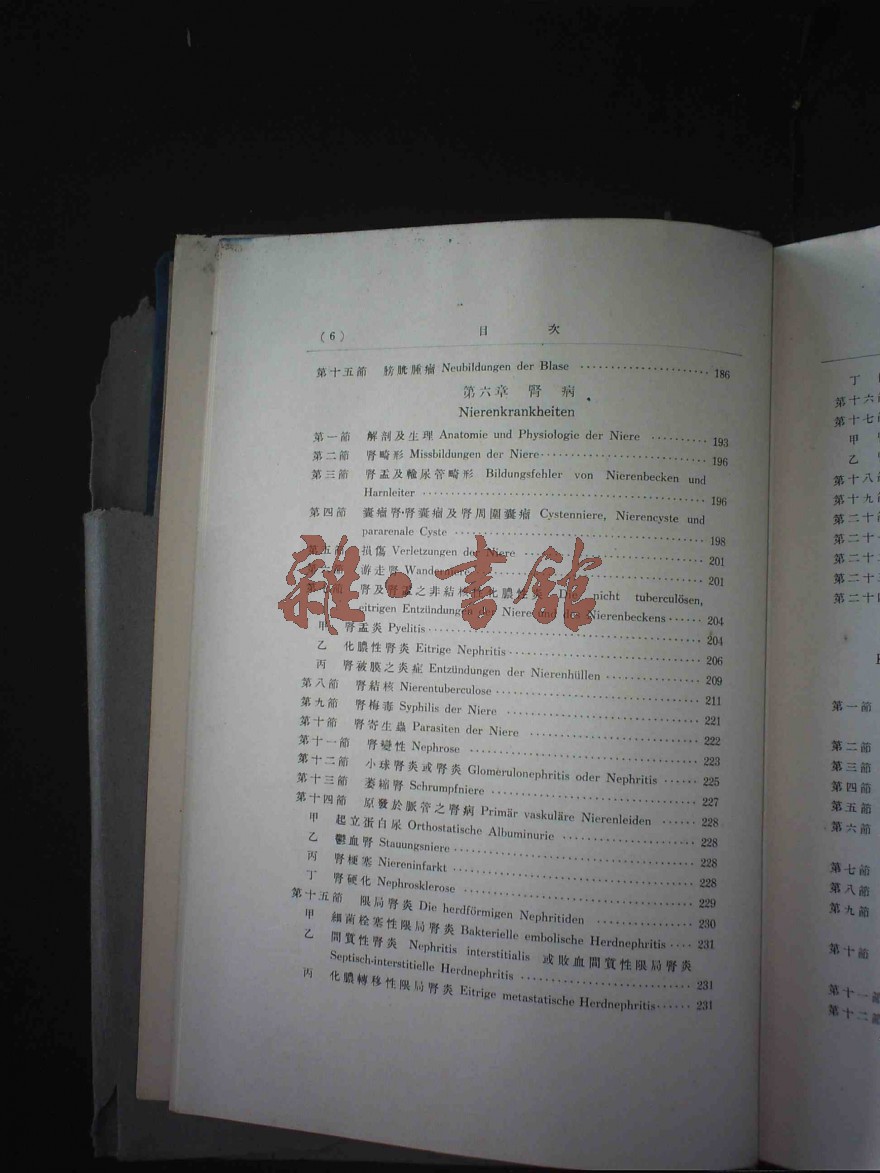 (6) 目 次
第十五節 膀胱腫瘤 Neubildungen der Blase ………… 186
第六章 腎 病
Nierenkrankheiten
第一節 解剖及生理 Anatomie und Physiologie der Niere ………… 193
第二節 腎畸形 Missbildungen der Niere ………… 196
第三節 腎盂及輸尿管畸形 Bildungsfehler von Nierenbecken und
Harnleiter ………… 196
第四節 囊瘤腎·腎囊瘤及腎周圍囊瘤 Cystenniere, Nierencyste und
pararenale Cyste ………… 198
第五節 損傷 Verletzungen der Niere ………… 201
第六節 游走腎 Wanderniere ………… 201
腎及腎盂之非結核性化膿性炎 Die nicht tuberculösen,
eitrigen Entzündungen der Niere und des Nierenbeckens …… 204
甲 腎盂炎 Pyelitis ………… 204
乙 化膿性腎炎 Eitrige Nephritis ………… 206
丙 腎被膜之炎症 Entzündungen der Nierenhüllen ………… 209
第八節 腎結核 Nierentuberculose ………… 211
第九節 腎梅毒 Syphilis der Niere ………… 221
第十節 腎寄生蟲 Parasiten der Niere ………… 222
第十一節 腎變性 Nephrose ………… 223
第十二節 小球腎炎或腎炎 Glomerulonephritis oder Nephritis …… 225
第十三節 萎縮腎 Schrumpfniere ………… 227
第十四節 原發於脈管之腎病 Primär vaskuläre Nierenleiden …… 228
甲 起立蛋白尿 Orthostatische Albuminurie ………… 228
乙 鬱血腎 Stauungsniere ………… 228
丙 腎梗塞 Niereninfarkt ………… 228
丁 腎硬化 Nephrosklerose ………… 229
第十五節 限局腎炎 Die herdförmigen Nephritiden ………… 230
甲 細菌栓塞性限局腎炎 Bakterielle embolische Herdnephritis …. 231
乙 間質性腎炎 Nephritis interstitialis 或敗血間質性限局腎炎
Septisch-interstitielle Herdnephritis ………… 231
丙 化膿轉移性限局腎炎 Eitrige metastatische Herdnephritis …… 231
雜·書館
丁
第十六
第十七
甲
乙
第十八
第十九
第二十
第二十一
第二十二
第二十三
第二十四
第一節
第二節
第三節
第四節
第五節
第六節
第七節
第八節
第九節
第十節
第十一節
第十二節